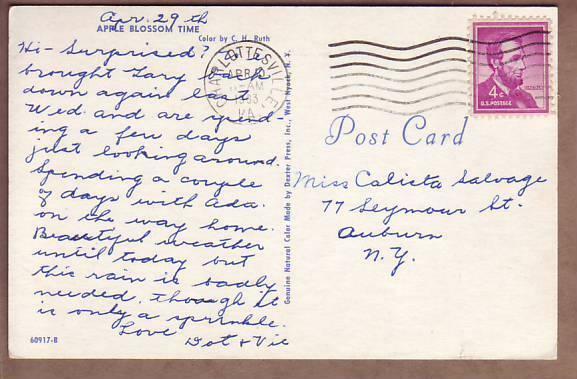 Apr. 29th
APPLE BLOSSOM TIME
Color by C. H. Ruth
Hi - Surprised? We
brought Gary back
down again last
Wed. and are spend-
ing a few days
just looking around.
Spending a couple
of days with Ada
on the way home.
Beautiful weather
until today but
this rain is badly
needed, though it
is only a sprinkle.
Love
Dot & Vic
60917-B
Genuine Natural Color Made by Dexter Press, Inc., West Nyack, N. Y.
CHARLOTTESVILLE
APR 30
AM
1963
VA
4¢
U.S. POSTAGE
LINCOLN
Post Card
Miss Calista Salvage
77 Seymour St.
Auburn
N.Y.